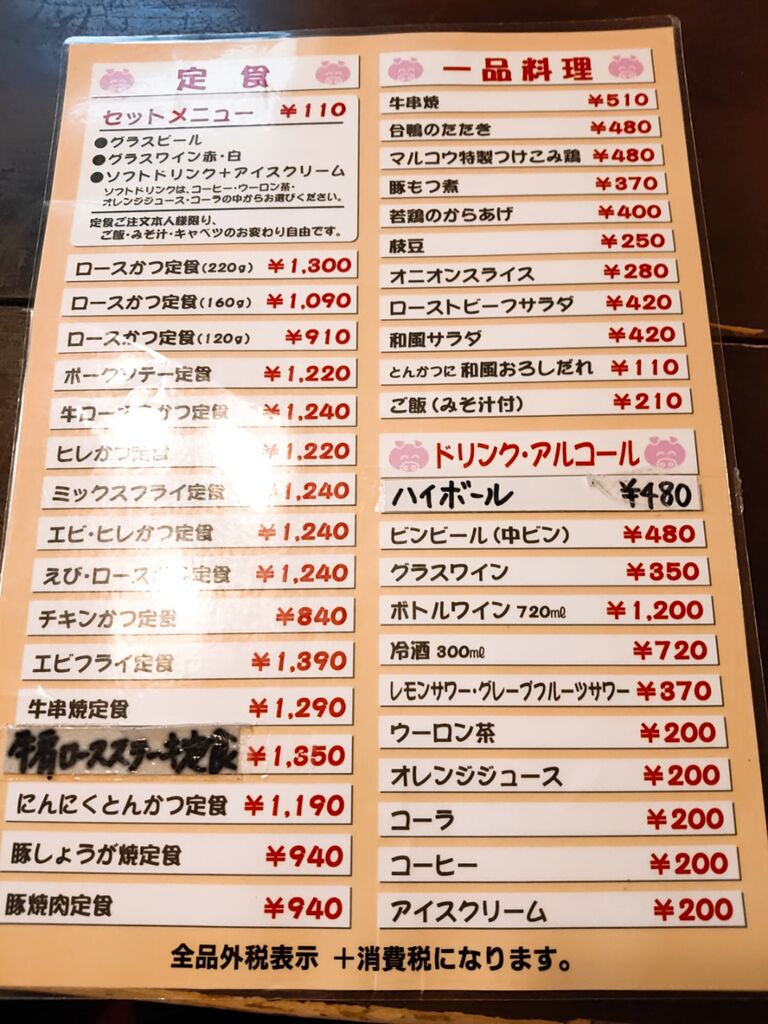 定食
セットメニュー ¥110
●グラスビール
●グラスワイン赤・白
●ソフトドリンク+アイスクリーム
ソフトドリンクは、コーヒー・ウーロン茶・
オレンジジュース・コーラの中からお選びください。
定食ご注文本人様限り、
ご飯・みそ汁・キャベツのお変わり自由です。
ロースかつ定食(220g) ¥1,300
ロースかつ定食(160g) ¥1,090
ロースかつ定食(120g) ¥910
ポークソテー定食 ¥1,220
牛ロースかつ定食 ¥1,240
ヒレかつ定食 ¥1,220
ミックスフライ定食 ¥1,240
エビ・ヒレかつ定食 ¥1,240
えび・ロースかつ定食 ¥1,240
チキンかつ定食 ¥840
エビフライ定食 ¥1,390
牛串焼定食 ¥1,290
牛肩ロースステーキ定食 ¥1,350
にんにくとんかつ定食 ¥1,190
豚しょうが焼定食 ¥940
豚焼肉定食 ¥940
一品料理
牛串焼 ¥510
合鴨のたたき ¥480
マルコウ特製つけこみ鶏 ¥480
豚もつ煮 ¥370
若鶏のからあげ ¥400
枝豆 ¥250
オニオンスライス ¥280
ローストビーフサラダ ¥420
和風サラダ ¥420
とんかつに 和風おろしだれ ¥110
ご飯(みそ汁付) ¥210
ドリンク・アルコール
ハイボール ¥480
ビンビール(中ビン) ¥480
グラスワイン ¥350
ボトルワイン 720㎖ ¥1,200
冷酒 300㎖ ¥720
レモンサワー・グレープフルーツサワー ¥370
ウーロン茶 ¥200
オレンジジュース ¥200
コーラ ¥200
コーヒー ¥200
アイスクリーム ¥200
全品外税表示 +消費税になります。